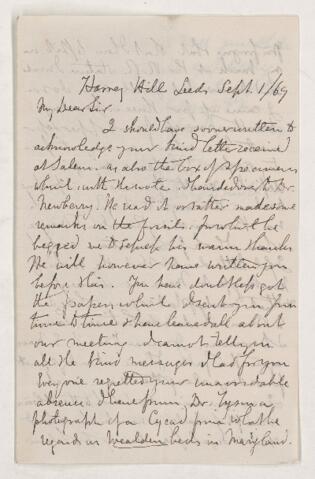 Harvey Hill Leeds Sept 1/69
My Dear Sir
I should have sooner written to
acknowledge your kind letter received
at Salem, as also the box of specimens
which, with the note, I handed over to Dr
Newberry. He read it or rather made some
remarks on the fossils, for which he
begged me to express his warm thanks
He will however have written you
before this. You have doubtless got
the papers which I sent you from
time to time & have learned all about
our meeting. I cannot tell you
all the kind messages I had for you
Everyone regretted your unavoidable
absence. I have from Dr. Tyson a
photograph of a Cycad from what he
regards as Wealden beds in Maryland.